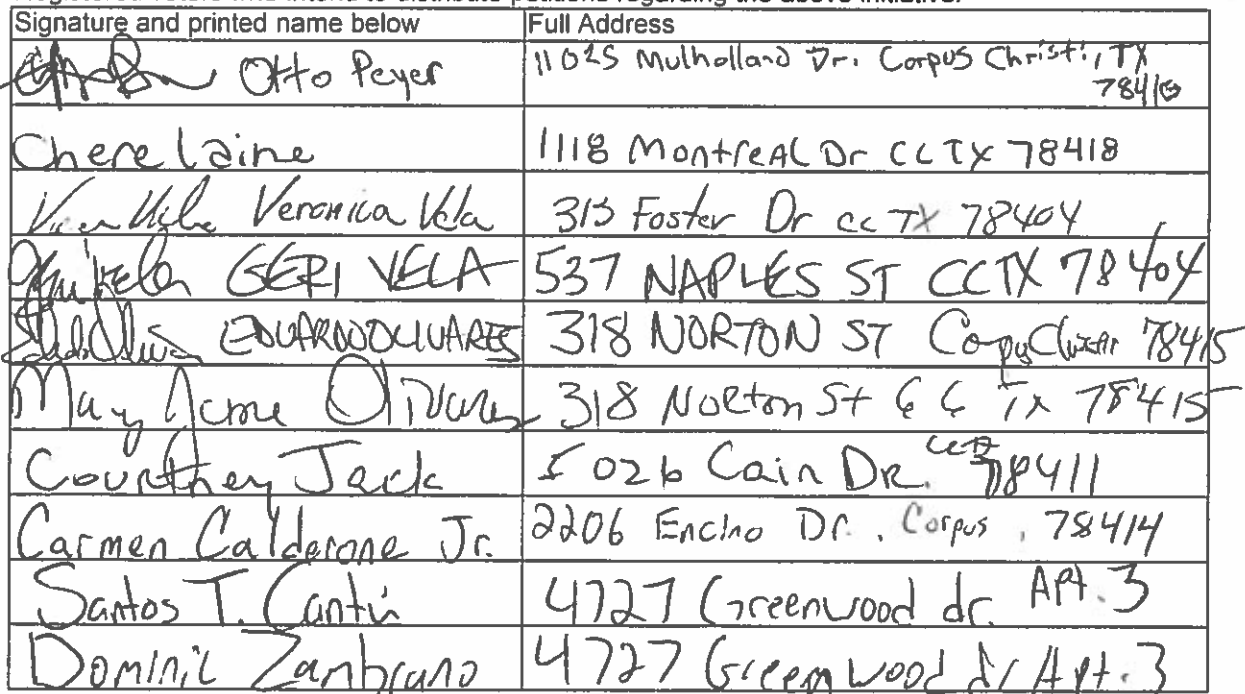 Signature and printed name below Full Address
Otto Peyer 11025 Mulholland Dr. Corpus Christi, TX
78410
Chere Laine 1118 Montreal Dr CC TX 78418
Veronica Vela 315 Foster Dr CC TX 78404
GERI VELA 537 NAPLES ST CCTX 78404
EDUARDO OLIVARES 318 NORTON ST Corpus Christi 78415
Mary Olivares 318 Norton St C C Tx 78415
Courthney Jack 5026 Cain DR. 78411
Carmen Calderone Jr. 2206 Encino Dr. . Corpus , 78414
Santos T. Cantú 4727 Greenwood dr. Apt. 3
Dominic Zambrano 4727 Greenwood dr Apt. 3